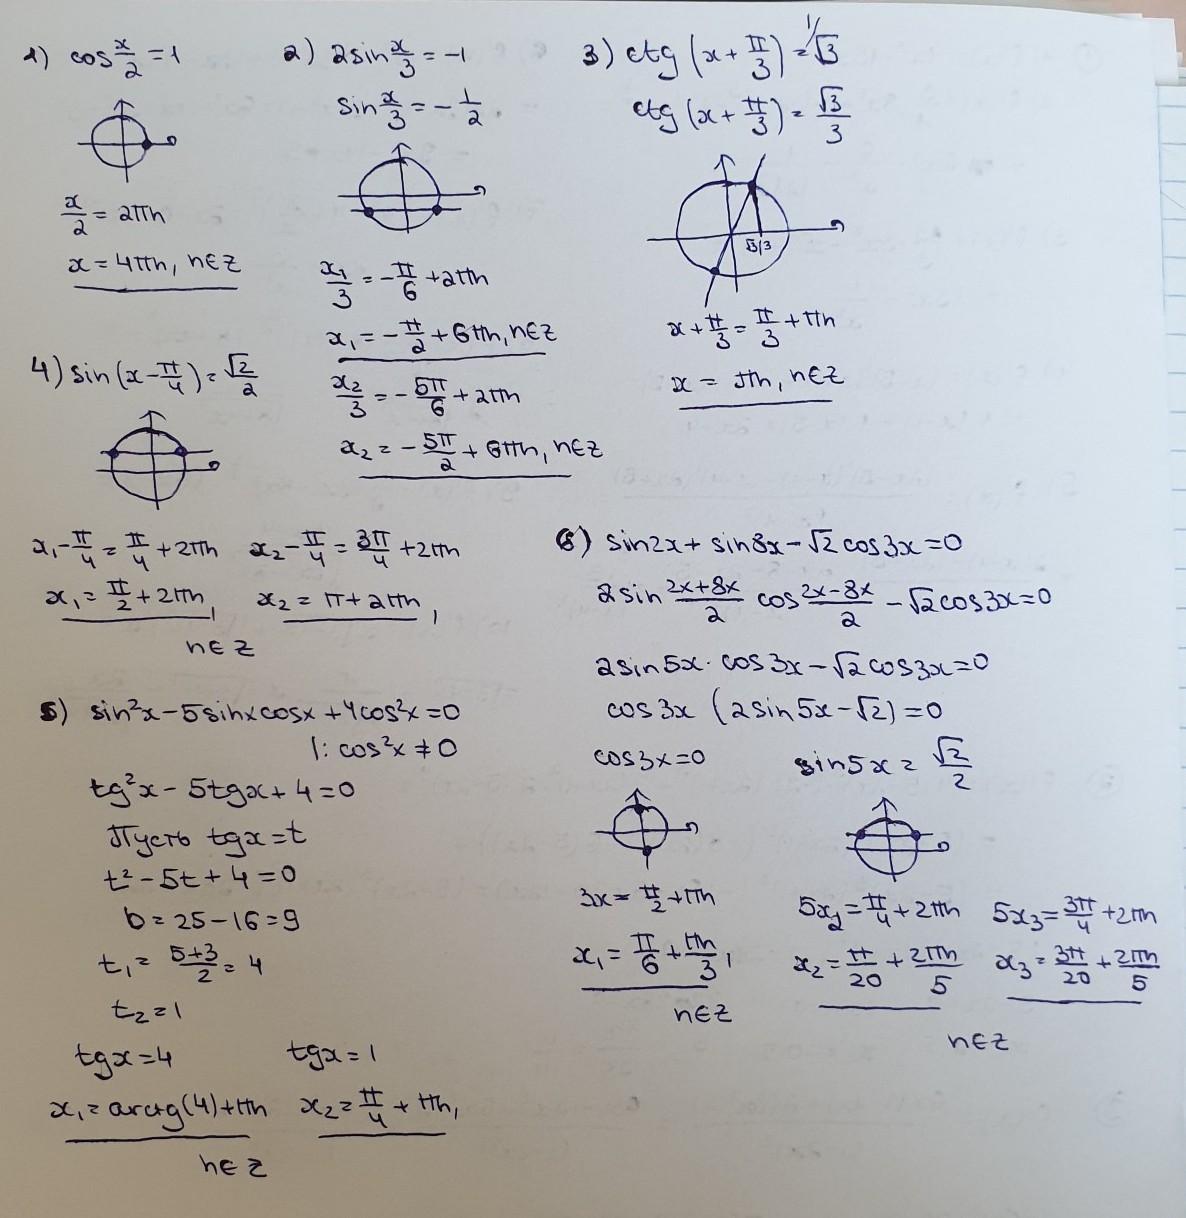 1) cos x/2 = 1
x/2 = 2πn
x = 4πn, n∈Z
2) 2sin x/3 = -1
sin x/3 = - 1/2
x₁/3 = - π/6 + 2πn
x₁ = - π/2 + 6πn, n∈Z
x₂/3 = - 5π/6 + 2πn
x₂ = - 5π/2 + 6πn, n∈Z
3) ctg (x + π/3) = 1/√3
ctg (x + π/3) = √3/3
√3/3
x + π/3 = π/3 + πn
x = πn, n∈Z
4) sin (x - π/4) = √2/2
x₁ - π/4 = π/4 + 2πn x₂ - π/4 = 3π/4 + 2πn
x₁ = π/2 + 2πn, x₂ = π + 2πn,
n∈Z
5) sin²x - 5sinxcosx + 4cos²x = 0
|: cos²x ≠ 0
tg²x - 5tgx + 4 = 0
Пусть tgx = t
t² - 5t + 4 = 0
D = 25 - 16 = 9
t₁ = 5+3/2 = 4
t₂ = 1
tgx = 4 tgx = 1
x₁ = arctg(4) + πn x₂ = π/4 + πn,
n∈Z
6) sin2x + sin8x - √2 cos3x = 0
2sin 2x+8x/2 cos 2x-8x/2 - √2 cos3x = 0
2sin5x · cos3x - √2 cos3x = 0
cos3x (2sin5x - √2) = 0
cos3x = 0 sin5x = √2/2
3x = π/2 + πn 5x₂ = π/4 + 2πn 5x₃ = 3π/4 + 2πn
x₁ = π/6 + πn/3, x₂ = π/20 + 2πn/5 x₃ = 3π/20 + 2πn/5
n∈Z
n∈Z